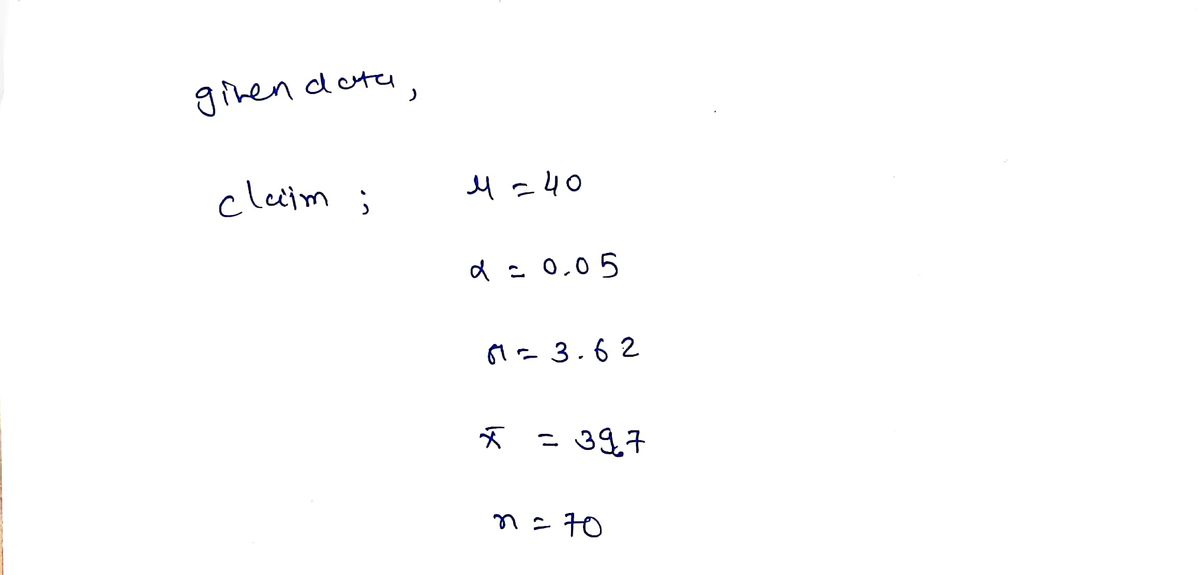 given data,
claim ; μ = 40
α = 0.05
σ = 3.62
x̄ = 39.7
n = 70